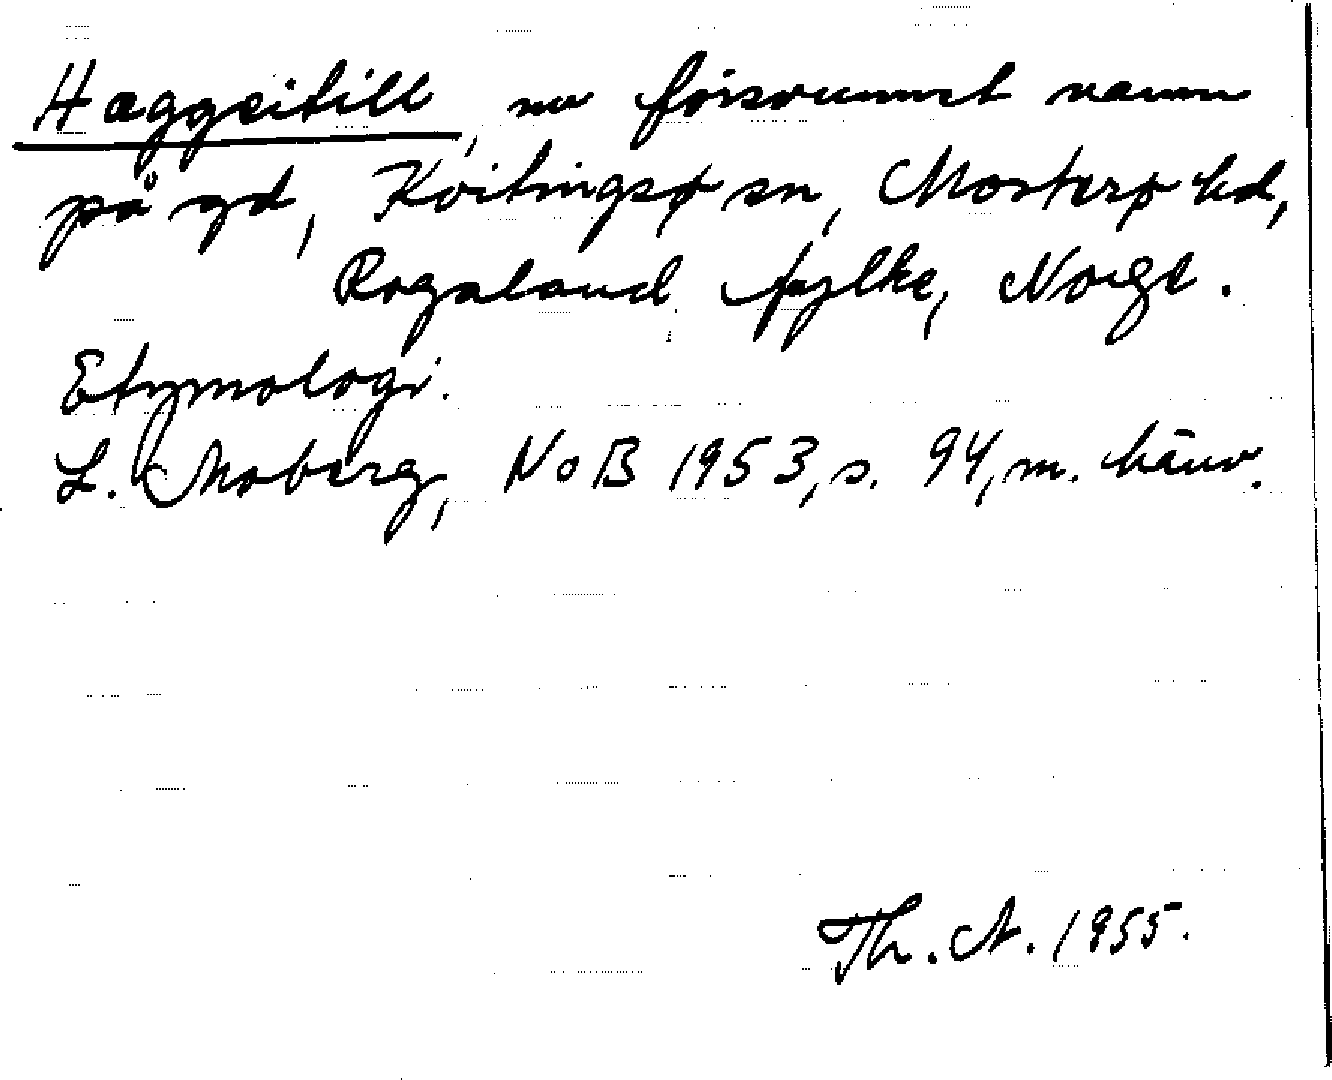 Haggeitill, nu försvunnet namn
på gd, Kvitingsø sn, Mosterø hd,
Rogaland fylke, Norge.
Etymologi.
L. Moberg, NoB 1953, s. 94, m. hänv.
Th. A. 1955.